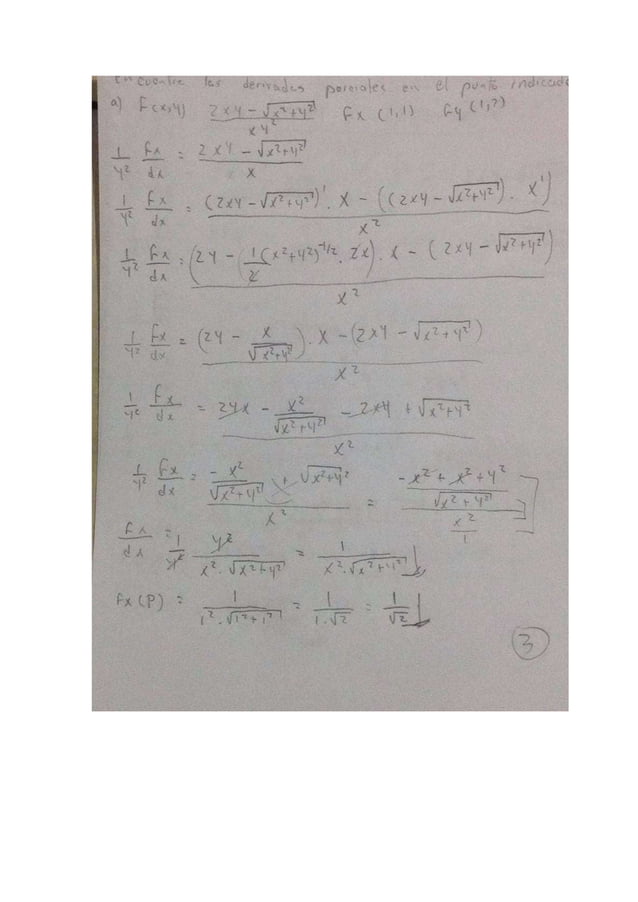 Encuentre las derivadas parciales en el punto indicado
a) F(x,y) (2xy - √(x²+y²))/(xy²) Fx (1,1) Fy (1,2)
1/y² Fx/dx = (2xy - √(x²+y²))/x
1/y² Fx/dx = ((2xy - √(x²+y²))' . x - ((2xy - √(x²+y²)) . x'))/x²
1/y² Fx/dx = ((2y - (1/2 (x²+y²)^(-1/2) . 2x)) . x - (2xy - √(x²+y²)))/x²
1/y² Fx/dx = ((2y - x/√(x²+y²)) . x - (2xy - √(x²+y²)))/x²
1/y² Fx/dx = (2yx - x²/√(x²+y²) - 2xy + √(x²+y²))/x²
1/y² Fx/dx = (-x²/√(x²+y²) + √(x²+y²))/x² = ((-x² + x² + y²)/√(x²+y²))/(x²/1)
Fx/dx = 1/y² y²/(x² . √(x²+y²)) = 1/(x² . √(x²+y²))
Fx(P) = 1/(1² . √(1²+1²)) = 1/(1 . √2) = 1/√2
3